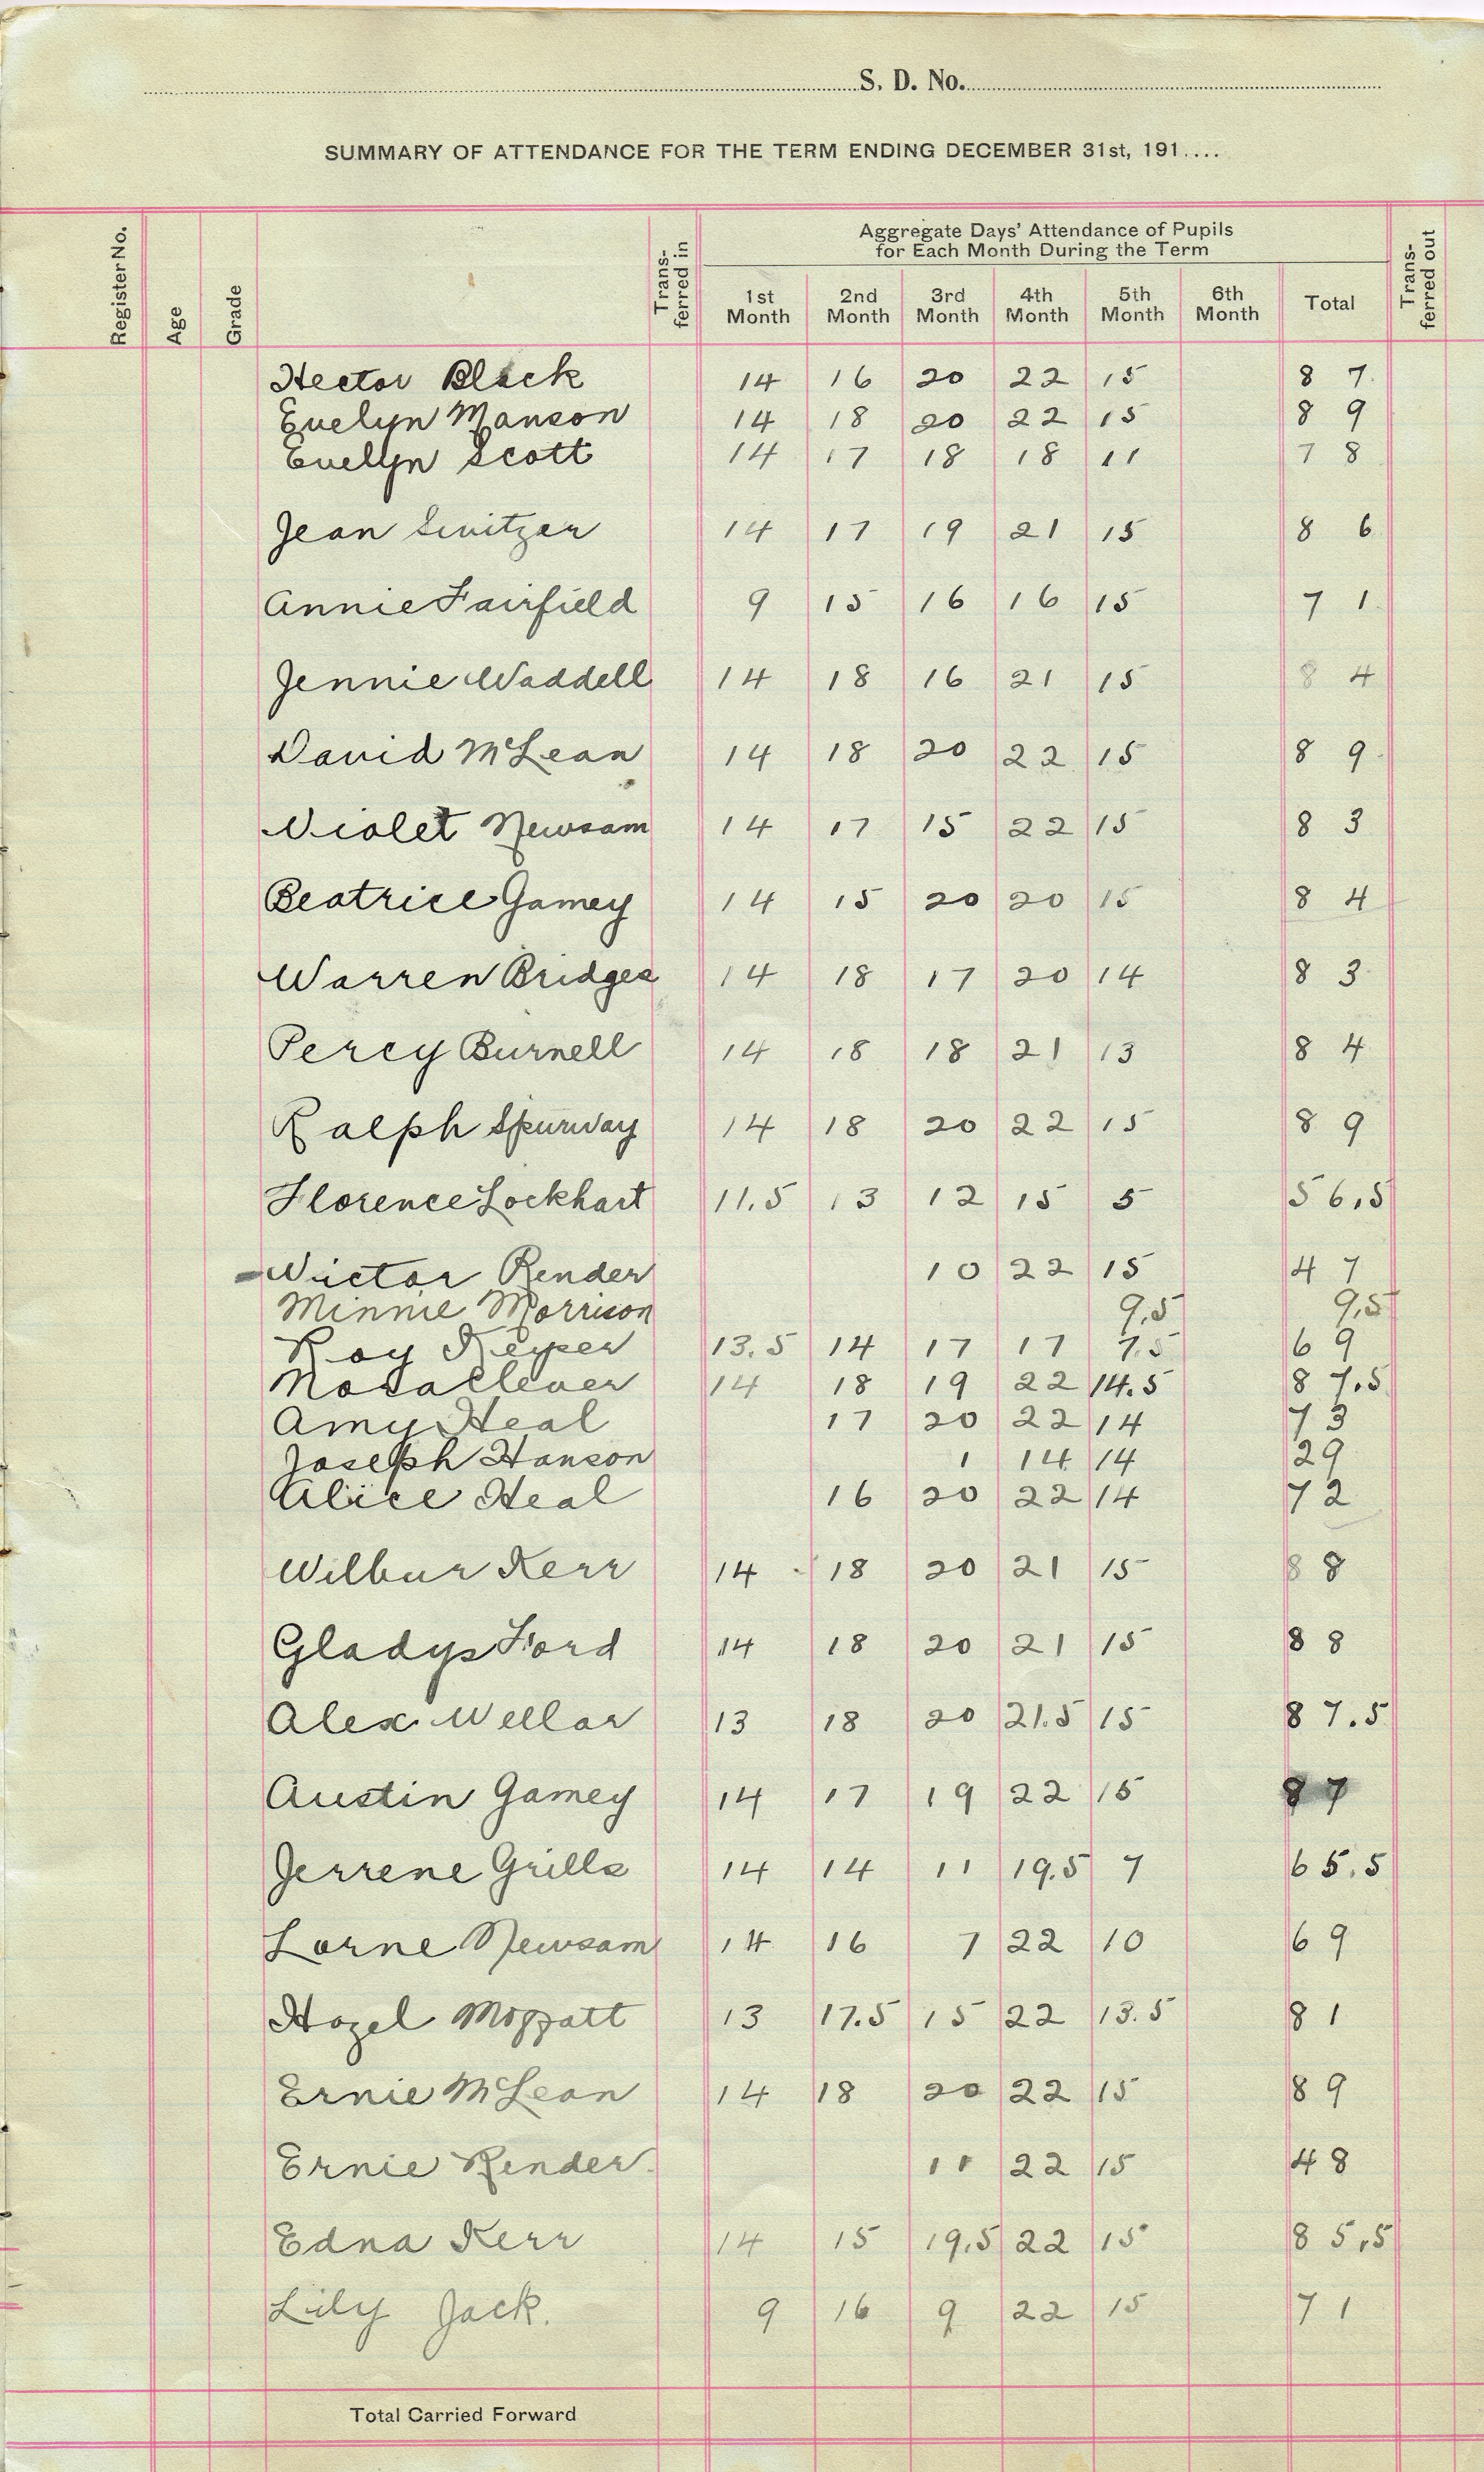 S. D. No.
SUMMARY OF ATTENDANCE FOR THE TERM ENDING DECEMBER 31st, 191....
Register No. Age Grade Trans-ferred in Aggregate Days' Attendance of Pupils for Each Month During the Term Trans-ferred out
1st Month 2nd Month 3rd Month 4th Month 5th Month 6th Month Total
Hector Black 14 16 20 22 15 87
Evelyn Manson 14 18 20 22 15 89
Evelyn Scott 14 17 18 18 11 78
Jean Switzer 14 17 19 21 15 86
Annie Fairfield 9 15 16 16 15 71
Jennie Waddell 14 18 16 21 15 84
David McLean 14 18 20 22 15 89
Violet Newsam 14 17 15 22 15 83
Beatrice Gamey 14 15 20 20 15 84
Warren Bridges 14 18 17 20 14 83
Percy Burnell 14 18 18 21 13 84
Ralph Spurway 14 18 20 22 15 89
Florence Lockhart 11.5 13 12 15 5 56.5
Victor Render 10 22 15 47
Minnie Morrison 9.5 9.5
Roy Keyper 13.5 14 17 17 7.5 69
Nora Clever 14 18 19 22 14.5 87.5
Amy Heal 17 20 22 14 73
Joseph Hanson 1 14 14 29
Alice Heal 16 20 22 14 72
Wilbur Kerr 14 18 20 21 15 88
Gladys Ford 14 18 20 21 15 88
Alex Wellar 13 18 20 21.5 15 87.5
Austin Gamey 14 17 19 22 15 87
Jerrene Grills 14 14 11 19.5 7 65.5
Lorne Newsam 14 16 7 22 10 69
Hazel Moffatt 13 17.5 15 22 13.5 81
Ernie McLean 14 18 20 22 15 89
Ernie Render 11 22 15 48
Edna Kerr 14 15 19.5 22 15 85.5
Lily Jack. 9 16 9 22 15 71
Total Carried Forward